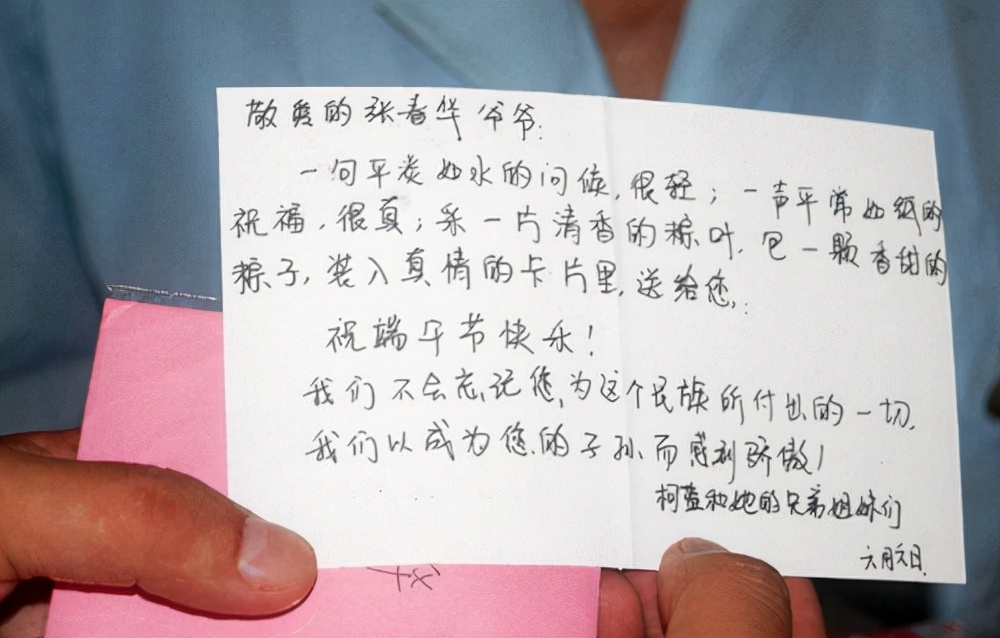 敬爱的张春华爷爷:
一句平淡如水的问候,很轻;一声平常如纸的
祝福,很真;采一片清香的粽叶,包一颗香甜的
粽子,装入真情的卡片里,送给您,:
祝端午节快乐!
我们不会忘记您,为这个民族所付出的一切,
我们以成为您的子孙而感到骄傲!
柯蓝和她的兄弟姐妹们
六月六日.